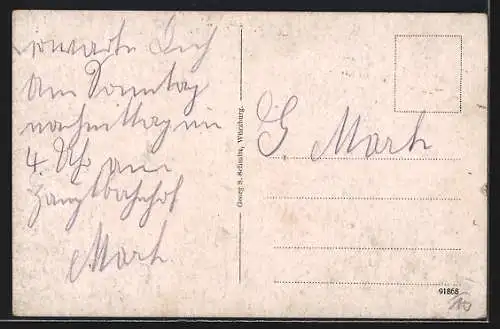 erwarte Dich
am Sonntag
nachmittag um
4 Uhr am
Hauptbahnhof
Mark
Georg S. Schmitt, Würzburg.
G. Mark
91868